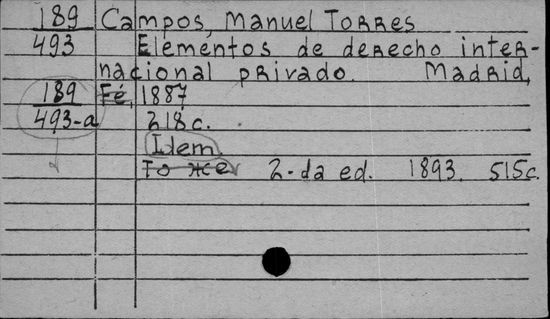 189 Campos, Manuel Torres
493 Elementos de derecho inter-
nacional privado. Madrid,
189 Fé, 1887
493-a 218c.
Idem
То же 2-da ed. 1893. 515c.